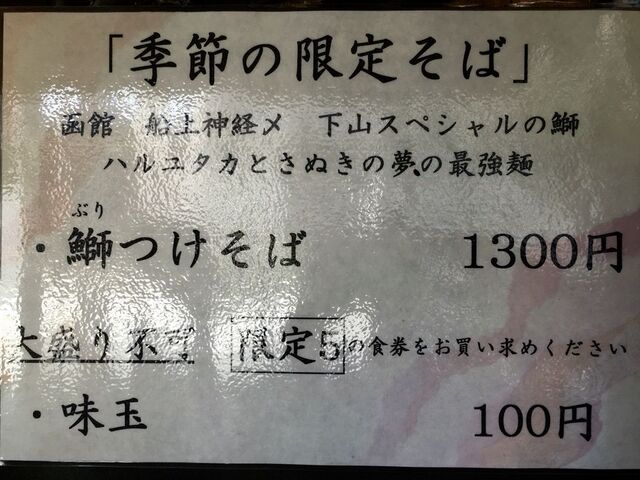 「季節の限定そば」
函館 船上神経〆 下山スペシャルの鰤
ハルユタカとさぬきの夢の最強麺
ぶり
・鰤つけそば 1300円
大盛り不可 限定5の食券をお買い求めください
・味玉 100円